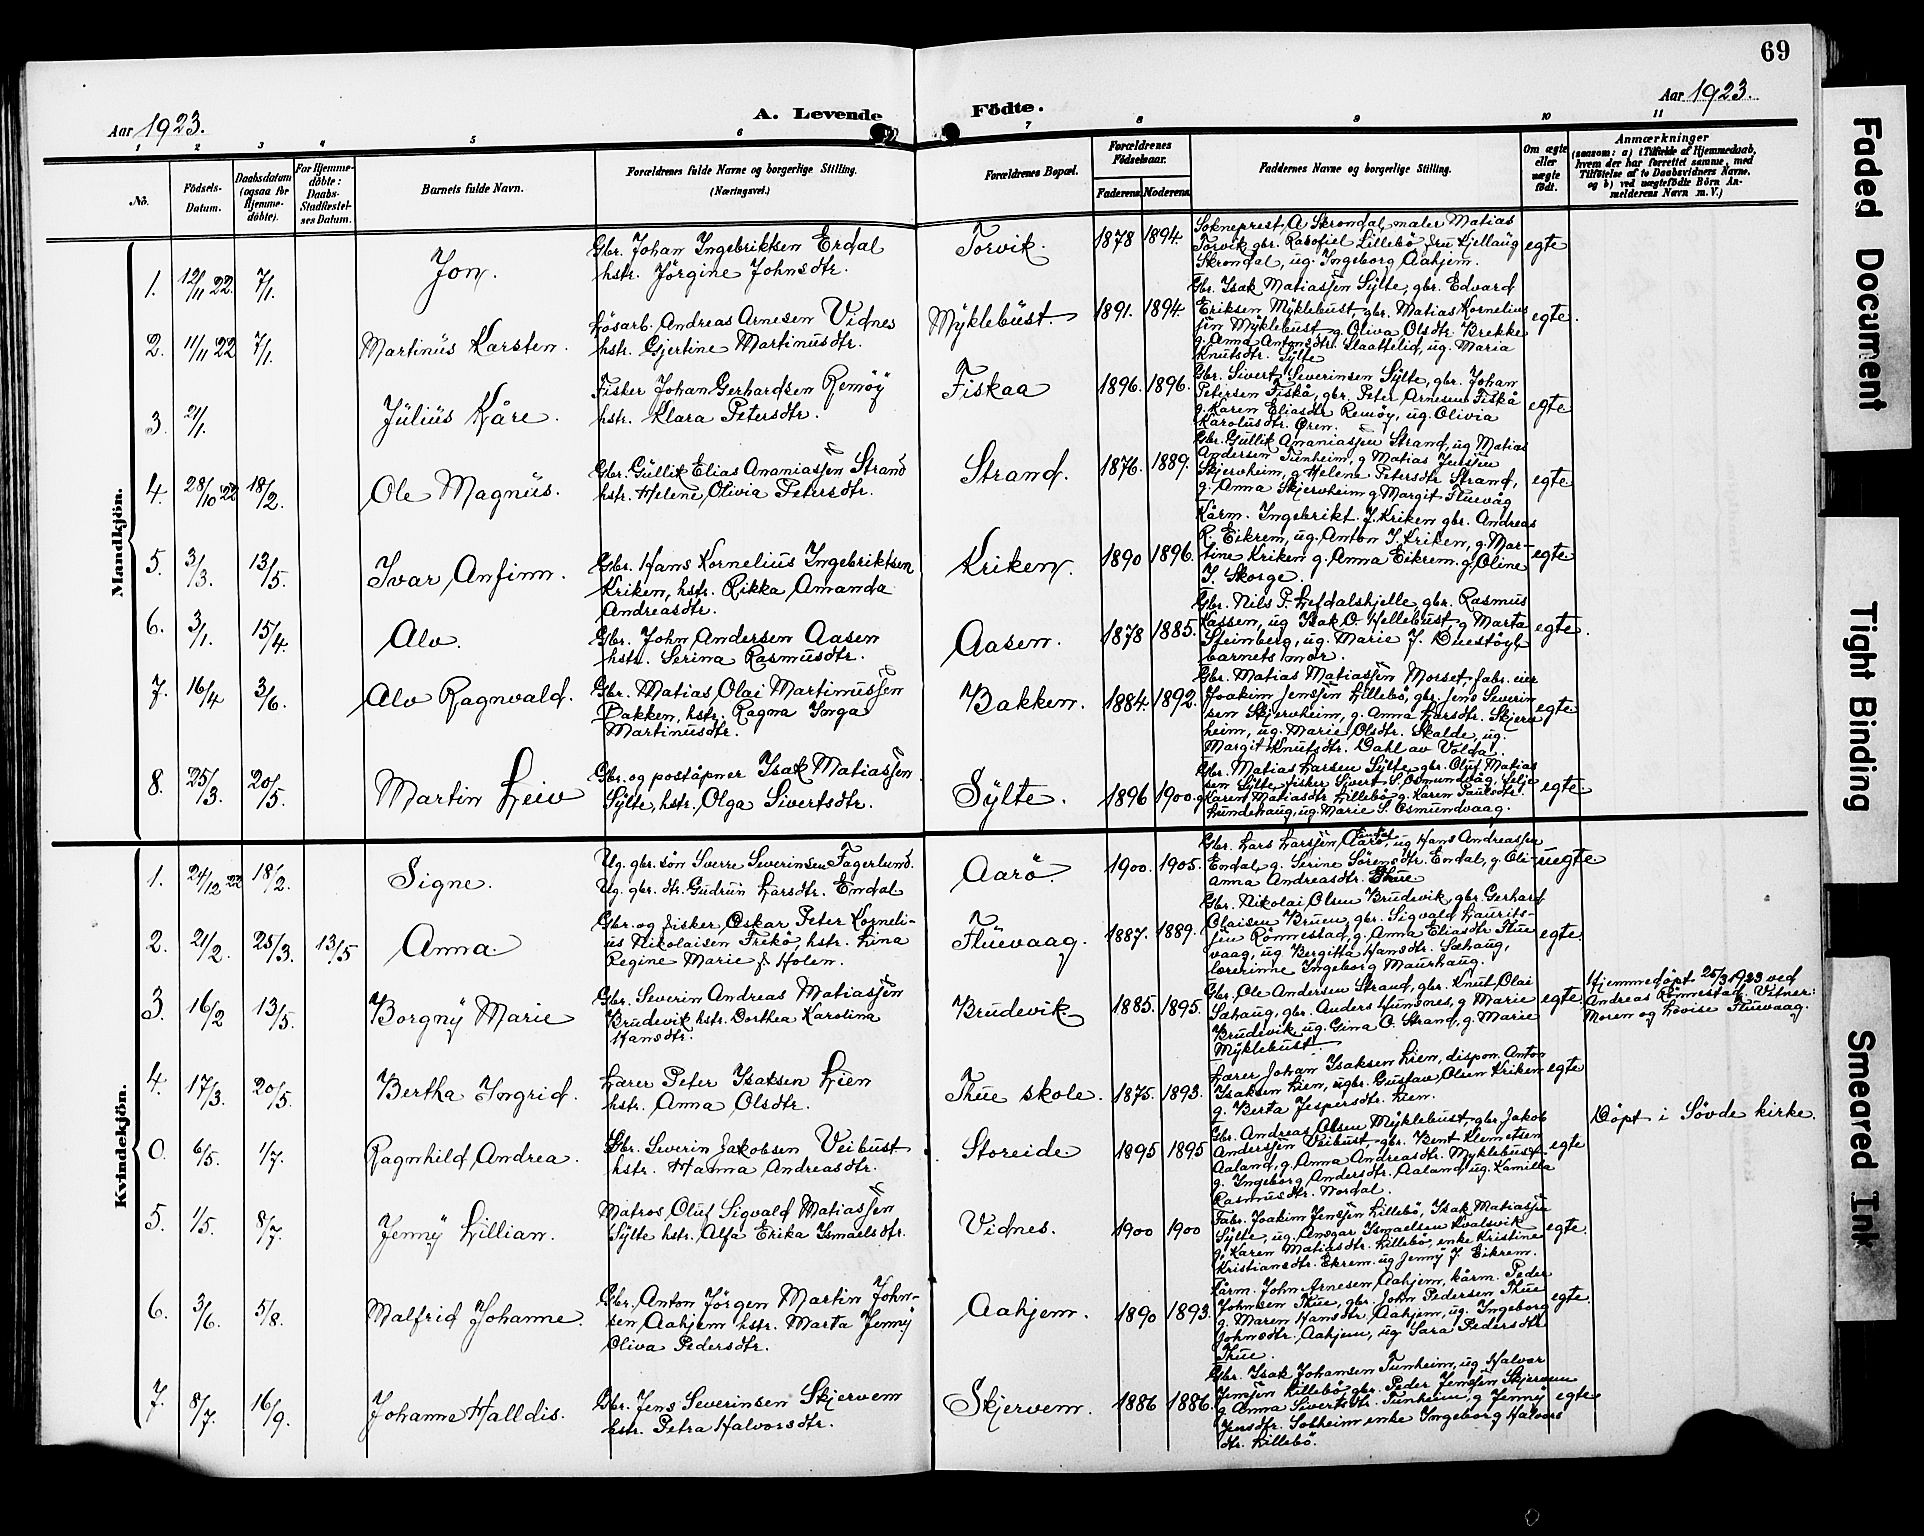 69
Aar 1923.
A. Levende Födte.
Aar 1923.
1 2 3 4 5 6 7 8 9 10 11
No.
Födsels-
Datum.
Daabsdatum
(ogsaa for
Hjemme-
döbte).
For Hjemme-
döbte:
Daabs-
Stadfæstel-
ses Datum.
Barnets fulde Navn.
Forældrenes fulde Navne og borgerlige Stilling.
(Næringsvei.)
Forældrenes Bopæl.
Forældrenes
Födselsaar.
Faderens Moderens
Faddernes Navne og borgerlige Stilling.
Om ægte
eller
uægte
födt.
Anmærkninger
(saasom: a) i Tilfælde af Hjemmedaab,
hvem der har forrettet samme, med
Tilföielse af to Daabsvidners Navne,
og b) ved uægtefödte Börn An-
melderens Navn m. V.)
Mandkjön.
1. 12/11 22. 7/1. Jon.
Gbr. Johan Ingebriktsen Erdal
hstr. Jörgine Johnsdtr.
Torvik. 1878 1894.
Sokneprest A Skrondal, maler Matias
Torvik gbr. Rasofiel Lillebö, fru Kjellaug
Skrondal, ug. Ingeborg Aahjem.
egte
2. 11/11 22 7/1. Martinus Karsten.
Lösarb. Andreas Arnesen Vidnes
hstr. Gjertine Martinusdtr.
Myklebust. 1891. 1894.
Gbr. Isak Matiassen Sylte, gbr. Edvard
Eriksen Myklebust gbr. Matias Kornelius
sen Myklebust g. Oliva Olsdtr. Brekke
g. Anna Antonsdtr. Slaattelid, ug. Maria
Knutsdtr. Sylte
egte.
3. 21/1. Julius Kåre.
Fisker Johan Gerhardsen Remöy
hstr. Klara Petersdtr.
Fiskaa 1896. 1896.
Gbr. Sivert Severinsen Sylte, gbr. Johan
Petersen Fiskå, gbr. Peter Arnesen Fiskå
g. Karen Eliasdtr Remöy, ug. Olivia
Karolusdtr. Ören.
egte
4. 28/10 22 18/2. Ole Magnus.
Gbr. Gullik Elias Ananiassen Strand
hstr. Helene Olivia Petersdtr.
Strand. 1876. 1889.
Gbr. Gullik Ananiassen Strand, ug Matias
Andersen Tunheim, g Matias Jetssen
Skjervheim, g Helene Petersdtr Strand,
g. Anna Skjervheim g Margit Fluevåg
egte
5. 3/3. 13/5. Ivar Anfinn.
Gbr. Hans Kornelius Ingebriktsen
Kriken, hstr. Rikka Amanda
Andreasdtr.
Kriken. 1890 1896.
Kårm. Ingebrikt. J. Kriken gbr. Andreas
R. Eikrem, ug. Anton I. Kriken, g. Mar-
tine Kriken g. Anna Eikrem. g. Oline
I. Skorge.
egte
6. 3/1. 15/4. Alv.
Gbr. John Andersen Aasen
hstr. Serina Rasmusdtr.
Aasen. 1878 1885.
Gbr. Nils P. Lefdalshjelle, gbr. Rasmus
Kassen, ug Isak O Hellebust g Marta
Steinberg, ug. Marie J. Duestöyl
barnets mor.
egte.
7. 16/4 3/6. Alv Ragnvald.
Gbr. Matias Olai Martinussen
Bakken, hstr. Ragna Inga
Martinusdtr.
Bakken. 1884. 1892.
Gbr. Matias Matiassen Morset, fabr. eier
Joakim Jenssen Lillebö, gbr. Jens Severin
sen Skjervheim, g. Anna Larsdtr. Skjerv
heim, ug. Marie Olsdtr. Skalde, ug.
Margit Knutsdtr. Dahl av Volda.
egte
8. 25/3. 20/5. Martin Leiv
Gbr. og poståpner Isak Matiassen
Sylte, hstr. Olga Sivertsdtr.
Sylte. 1896 1900.
Gbr. Matias Larsen Sylte gbr. Oluf Matias
sen Sylte, fisker Sivert S. Osmundvåg, Selje
g Karen Matiasdtr Lillebö g. Karen Paulsdtr.
Lundehaug, ug. Marie S. Osmundvaag.
egte
Kvindekjön.
1. 24/12 22 18/2. Signe.
Ug. gbr. sön Sverre Severinsen Fagerlund.
Ug. gbr. dtr. Gudrun Larsdtr. Endal
Aarö. 1900. 1905.
Gbr. Lars Larssen Aarö, ug Hans Andreassen
Endal, g. Serine Sörensdtr. Endal, g. Oli-
anna Andreasdtr. Thue
uegte
2. 21/2. 25/3. 13/5 Anna.
Gbr. og fisker Oskar Peter Korneli-
us Nikolaisen Frekö, hstr. Lina
Regine Marie f. Holen.
Fluevaag. 1887. 1889.
Gbr. Nikolai Olsen Brudevik, gbr. Gerhard
Olaisen Bruen, gbr. Sigvald Laurits-
sen Rönnestad, g. Anna Eliasdtr Flue
vaag, ug Bergitta Hansdtr. Sæhaug,
lærerinne Ingeborg Maurhaug.
egte.
Hjemmedöpt 25/3 1923 ved
Andreas Rönnestad. Vitner:
Moren og Lovise Fluevaag.
3. 16/2 13/5. Borgny Marie
Gbr. Severin Andreas Matiassen
Brudevik hstr. Dorthea Karolina
Hansdtr.
Brudevik 1885. 1895.
Gbr. Ole Andersen Strand, gbr. Knut Olai
Sahaug, gbr. Anders Hunsnes, g Marie
Brudevik ug. Gina O. Strand, g. Marie
Myklebust.
egte
4. 17/3. 20/5. Bertha Ingrid.
Lærer Peter Isaksen Lien
hstr. Anna Olsdtr.
Thue skole. 1875. 1893.
Lærer Johan Isaksen Lien, dispon. Anton
Isaksen Lien, ugbr. Gustav Olsen Kriken
g. Berta Jespersdtr. Lien.
egte
0. 6/5. 1/7. Ragnhild Andrea.
Gbr. Severin Jakobsen Veibust
hstr. Hanna Andreasdtr.
Storeide 1895 1895
Gbr. Andreas Olsen Myklebust, gbr. Jakob
Anderssen Veibust, gbr. Bent Klemetsen
Aaland, g. Anna Andreasdtr. Myklebust
g. Ingeborg Andersdtr. Aaland, ug. Kamilla
Rasmusdtr. Nordal.
egte
Döpt i Sövde kirke.
5. 1/5. 8/7. Jenny Lillian.
Matros Oluf Sigvald Matiassen
Sylte hstr. Alfa Erika Ismaelsdtr.
Vidnes. 1900 1900
Fabr. Joakim Jenssen Lillebö, Isak Matiassen
Sylte, ug. Ansgar Ismaelsen Kvalsvik
g. Karen Matiasdtr. Lillebö, enke Kristine
Kristiansdtr. Ekrem. ug Jenny J. Eikrem.
egte.
6. 3/6. 5/8. Malfrid Johanne.
Gbr. Anton Jörgen Martin John-
sen Aahjem hstr. Marta Jenny
Oliva Pedersdtr.
Aahjem. 1890 1893.
Kårm. John Arnesen Aahjem, kårm. Peder
Johnsen Thue, gbr. John Pedersen Thue
g. Maren Hansdtr. Aahjem, ug. Ingeborg
Johnsdtr. Aahjem, ug Sara Pedersdtr
Thue.
egte.
7. 8/7. 16/9. Johanne Halldis.
Gbr. Jens Severinsen Skjervem
hstr. Petra Halvorsdtr.
Skjervem. 1886 1886.
Gbr. Isak Johansen Tunheim, ug Halvor
Jenssen Lillebö, gbr. Peder Jenssen Skjervem
g. Anna Sivertsdtr. Tunheim, g Jenny
Jensdtr. Solheim enke Ingeborg Halvors
dtr. Lillebö.
egte
Faded Document
Tight Binding
Smeared Ink